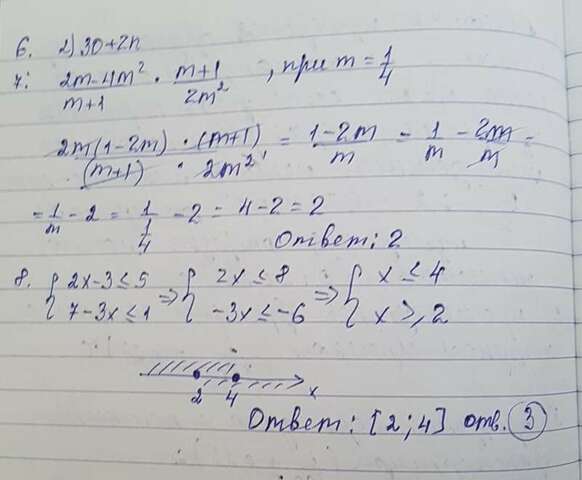 6. 2) 30+2n
7: (2m-4m²)/(m+1) · (m+1)/(2m²), при m = 1/4
(2m(1-2m) · (m+1))/((m+1) · 2m²) = (1-2m)/m = 1/m - 2m/m =
= 1/m - 2 = 1/(1/4) - 2 = 4-2 = 2
Ответ: 2
8. { 2x-3≤5 => { 2x≤8 => { x≤4
{ 7-3x≤1 { -3x≤-6 { x≥2
2 4 x
Ответ: [2;4] отв. 3